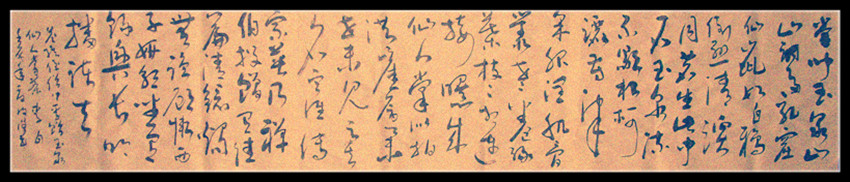 常聞玉泉山
山洞多乳窟
仙鼠如白鴉
倒懸清溪
月茗生此中
石玉泉流
不歇根柯
灑芳津
采服潤肌骨
叢老卷綠
葉枝枝相連
接曝成
仙人掌似拍
洪崖肩舉
世未見之其
名定誰傳
宗英乃禪
伯投贈有佳
篇清鏡燭
無鹽顧慚西
子妍朝坐有
餘興長吟
播諸天
答族侄僧中孚贈玉泉
仙人掌茶 李白